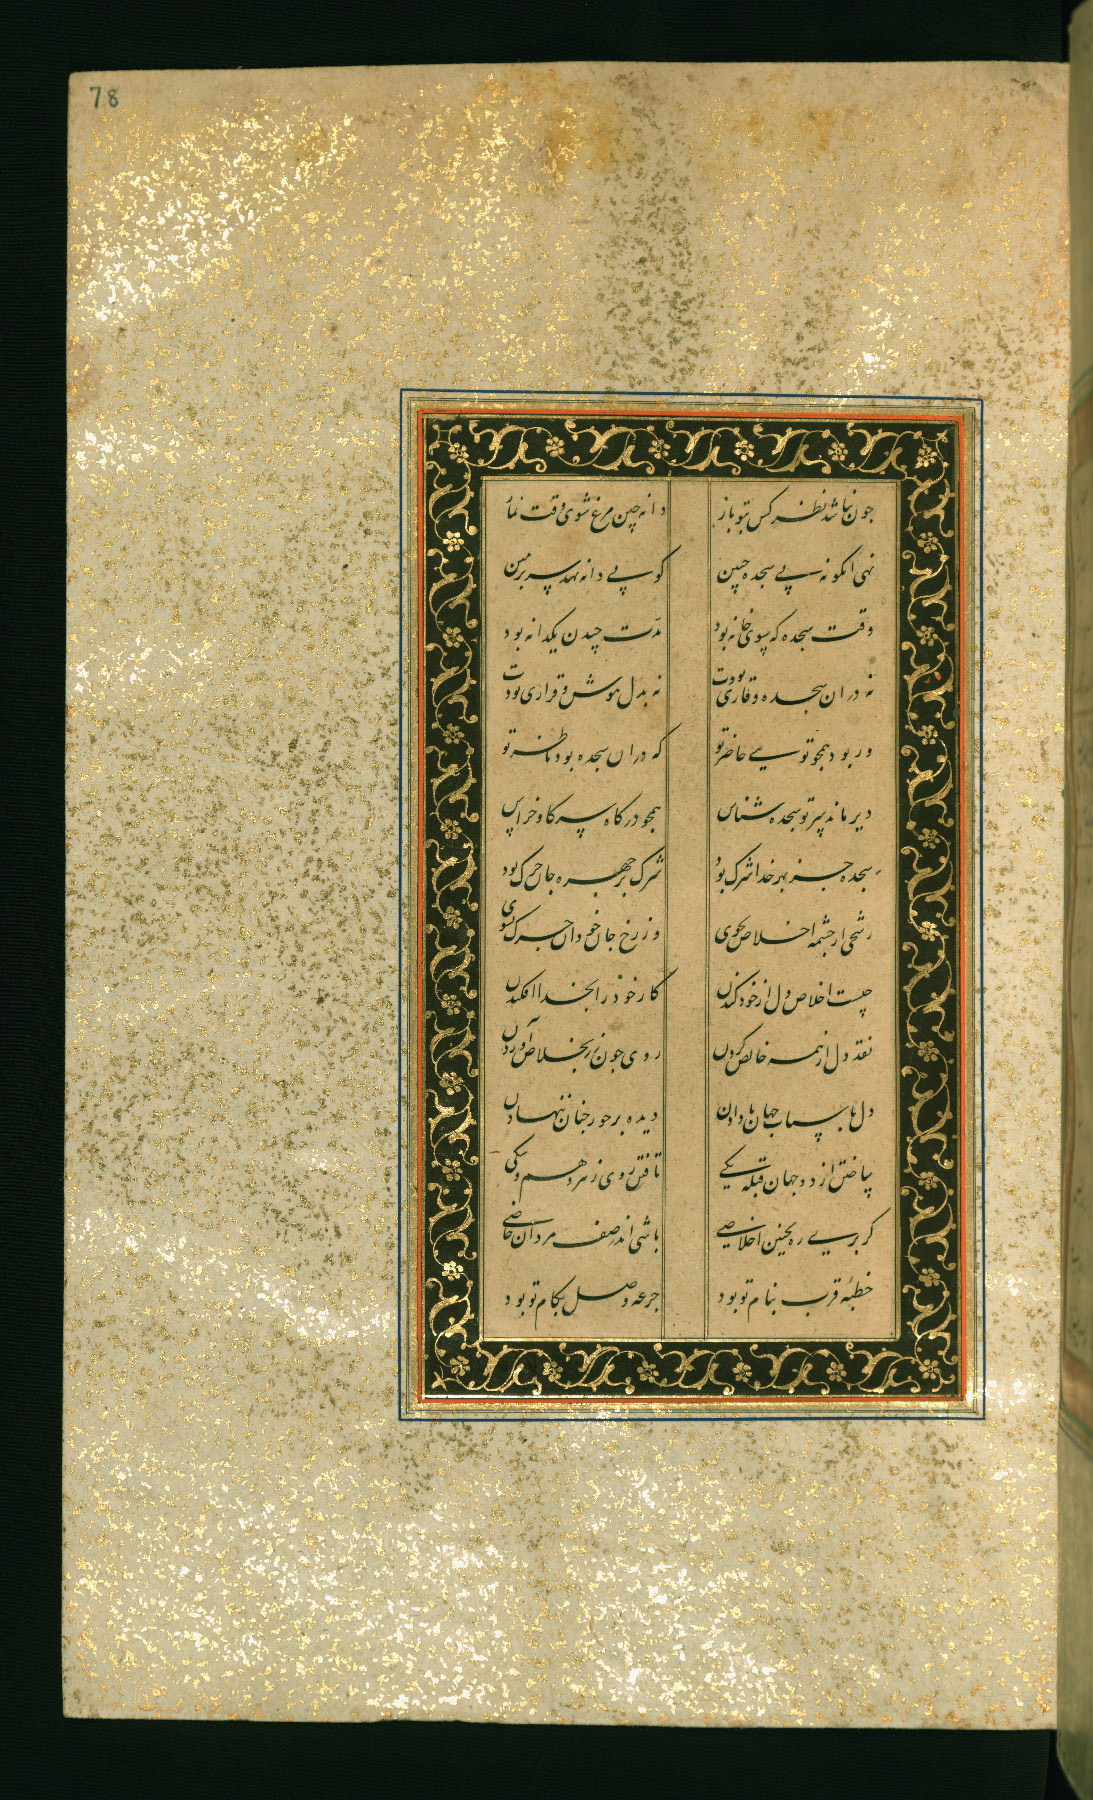 78
چون نباشد نظر کس بتو باز دانه چین مرغ شوی وقت نماز
نهی انکونه پی سجده جبین کوپی دانه نهد سر بزمین
وقت سجده که سوی خانه بود مدت چیدن یکدانه بود
نه در ان سجده وقاری بودت نه بدل هوش و قراری بودت
ور بود همچو تویی حاضر تو که در ان سجده بود ناظر تو
دیر ماند سر تو سجده شناس همچو در کاه سر کاو خراس
سجده جز بهر خدا شرک بود شرک بر چهره جان چرک بود
رشحی از چشمه اخلاص بجوی وز رخ جان خود ان چرک بشوی
چیست اخلاص دل از خود کندن کار خود را بخدا افکندن
نقد دل از همه خالص کردن روی چون زر بخلاص آوردن
دل باسباب جهان نادادن دیده بر حور جنان ننهادن
ساختن از دو جهان قبله یکی تافتن روی ز هر و هم و شکی
کر بری ره بچنین اخلاصی باشی اندر صف مردان خاصی
خطبهٔ قرب بنام تو بود جرعه وصل بکام تو بود